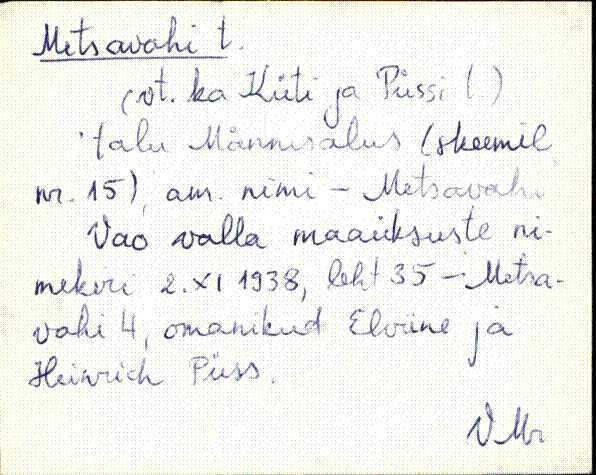 Metsavahi t.
(vt. ka Küti ja Püssi t.)
talu Männisalus (skeemil
nr. 15), am. nimi – Metsavahi
Vao valla maaüksuste ni-
mekiri 2.XI 1938, leht 35 – Metsa-
vahi 4, omanikud Elviine ja
Heinrich Püss.
VMr